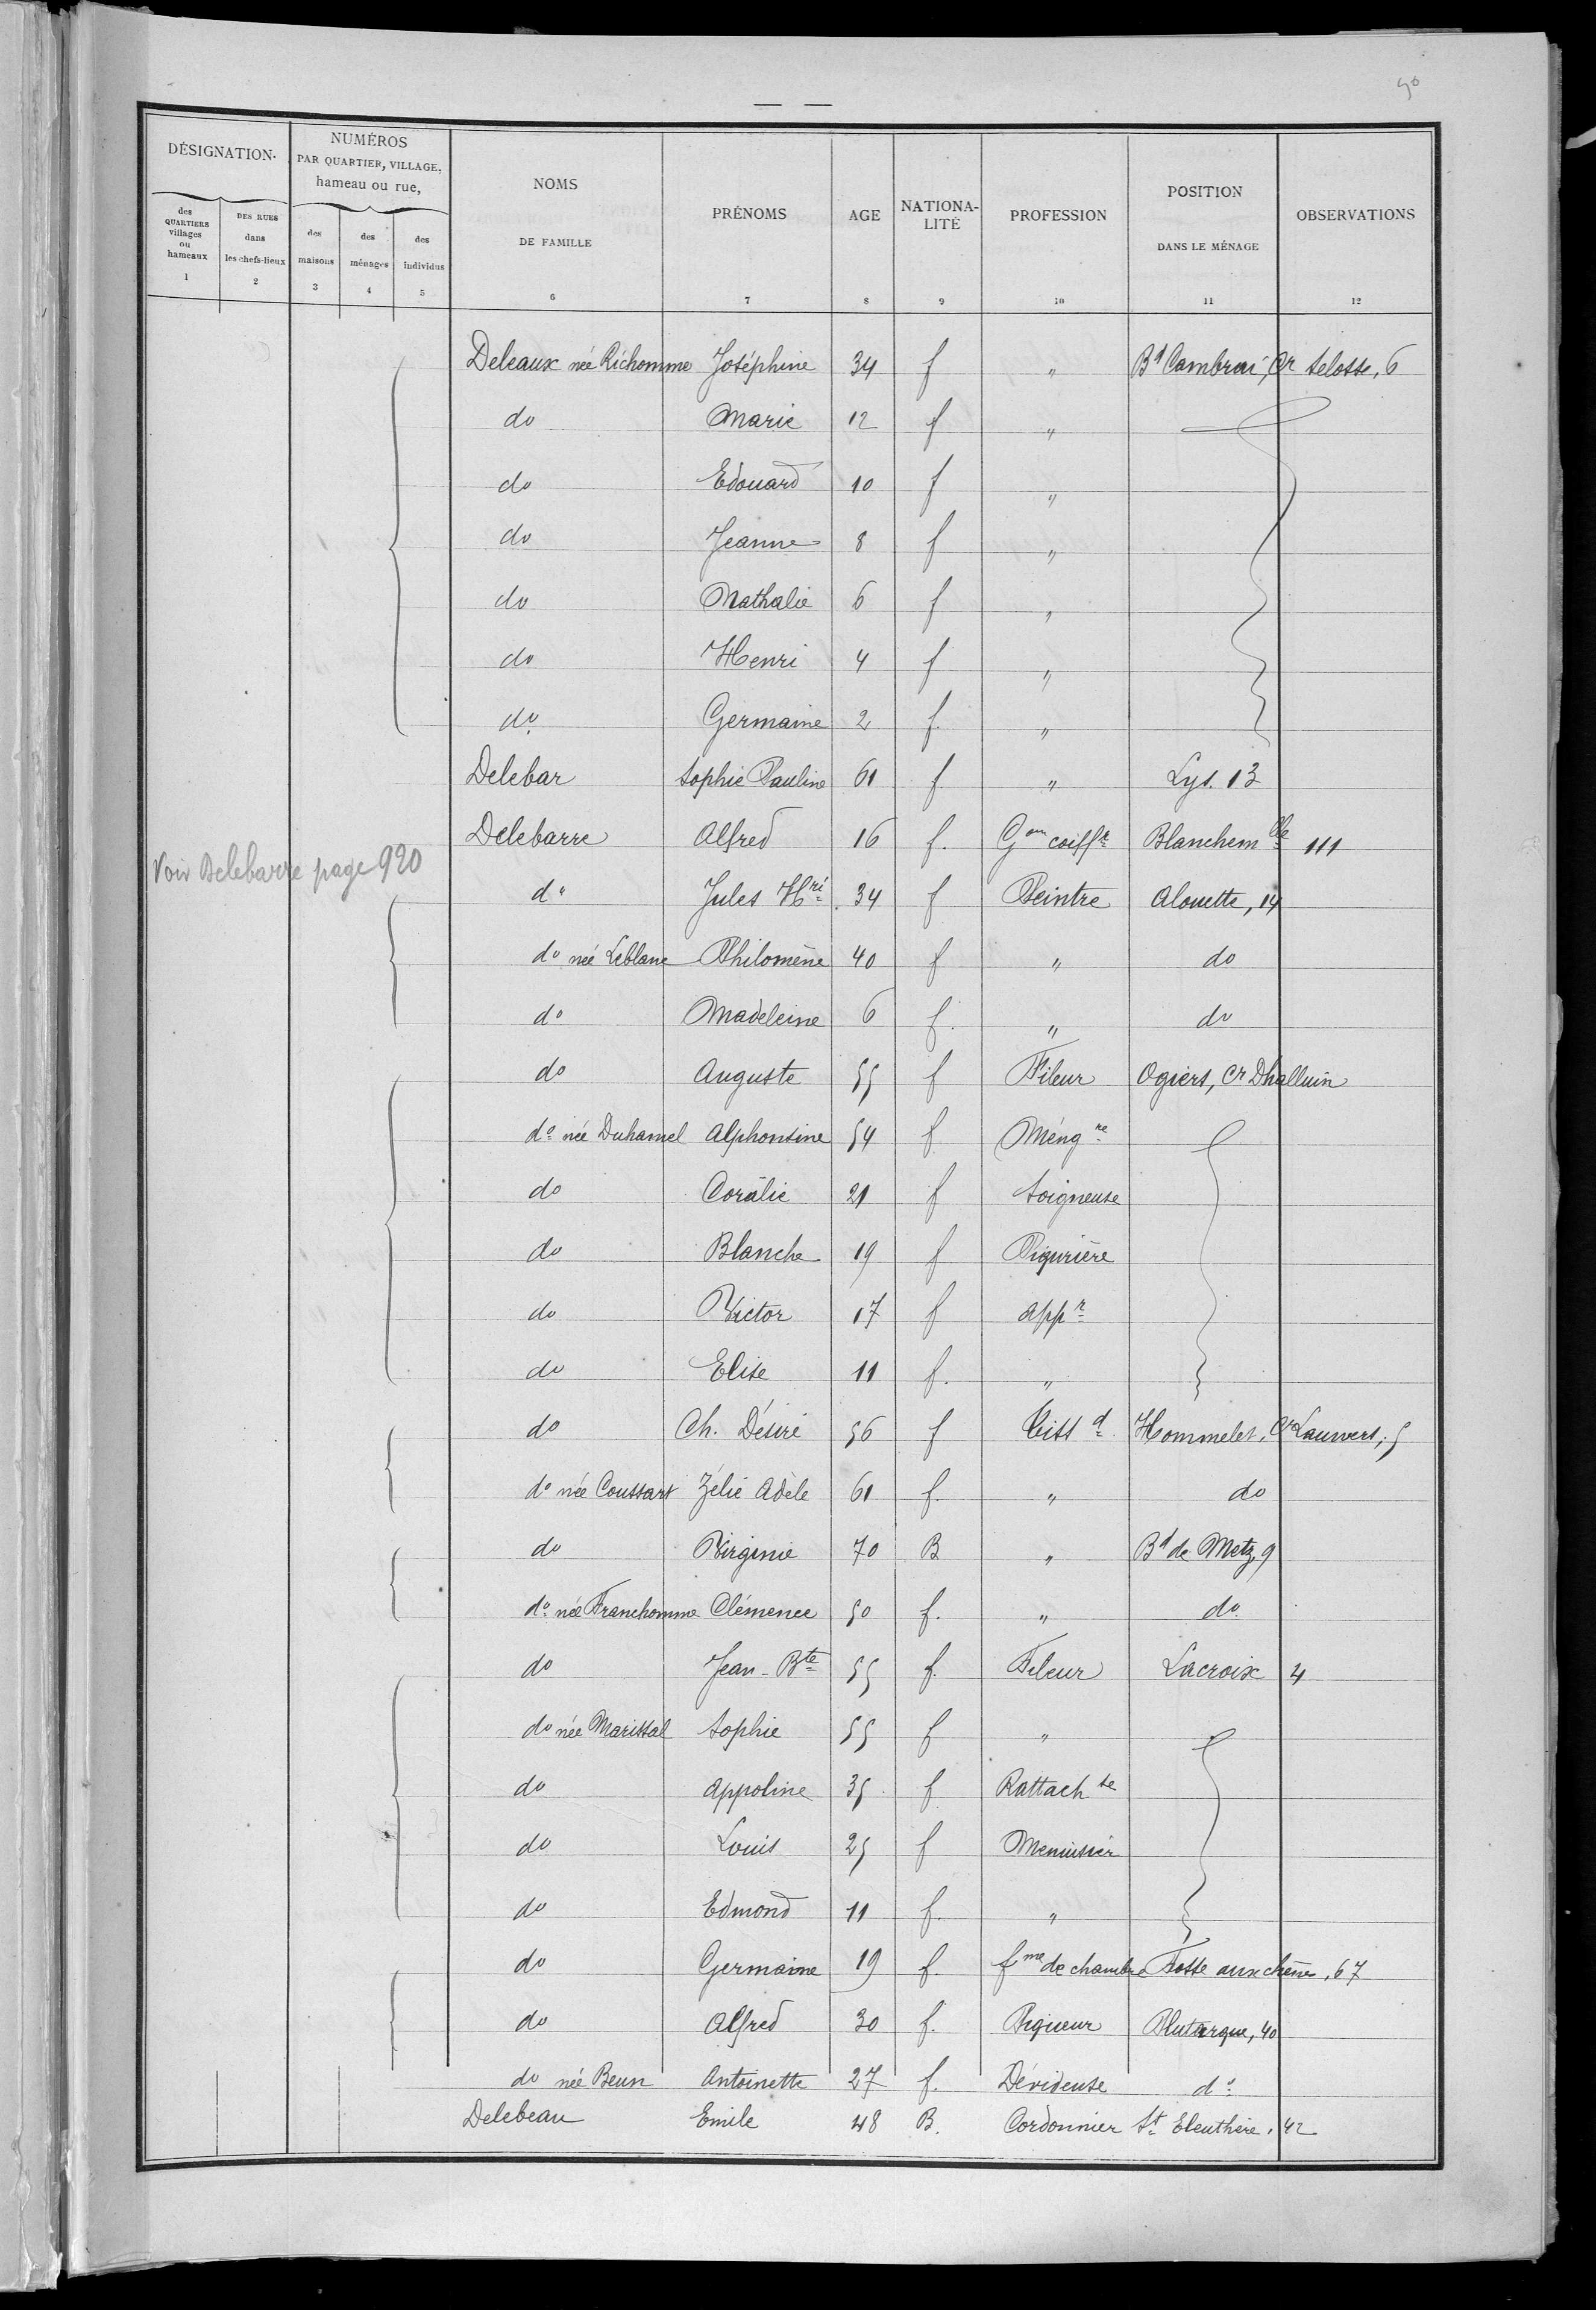 90
DÉSIGNATION.
NUMÉROS
PAR QUARTIER, VILLAGE,
hameau ou rue,
NOMS
DE FAMILLE
PRÉNOMS
AGE
NATIONA-
LITÉ
PROFESSION
POSITION
DANS LE MÉNAGE
OBSERVATIONS
des
QUARTIERS
villages
ou
hameaux
DES RUES
dans
les chefs-lieux
des
maisons
des
ménages
des
individus
1 2 3 4 5 6 7 8 9 10 11 12
Deleaux née Richomme Joséphine 34 f " Bd Cambrai, Cr Selosse, 6
do Marie 12 f "
do Edouard 10 f "
do Jeanne 8 f "
do Nathalie 6 f "
do Henri 4 f "
do Germaine 2 f. "
Delebar Sophie Pauline 61 f " Lys. 13
Delebarre Alfred 16 f. Gon coiffr Blanchemlle 111
Voir Delebarre page 920
do Jules Hri 34 f Peintre Alouette, 14
do née Leblanc Philomène 40 f " do
do Madeleine 6 f. " do
do Auguste 55 f Fileur Ogiers, Cr Dhalluin
do née Duhamel Alphonsine 54 f Méngre
do Coralie 21 f Soigneuse
do Blanche 19 f Piqurière
do Victor 17 f appr
do Elise 11 f. "
do Ch. Désiré 56 f Tissd Hommelet, Cr Lauwers, 5
do née Coussart Zélie Adèle 61 f. " do
do Virginie 70 B " Bd de Metz, 9
do née Franchomme Clémence 50 f. " do
do Jean-Bte 55 f. Fileur Lacroix 4
do née Marissal Sophie 55 f "
do Appoline 35 f Rattachse
do Louis 25 f Menuisier
do Edmond 11 f. "
do Germaine 19 f. fme de chambre Fosse aux chênes, 67
do Alfred 30 f. Piqueur Plutarque, 40
do née Beun Antoinette 27 f. Dévideuse do
Delebeau Emile 48 B. Cordonnier St Eleuthère, 42